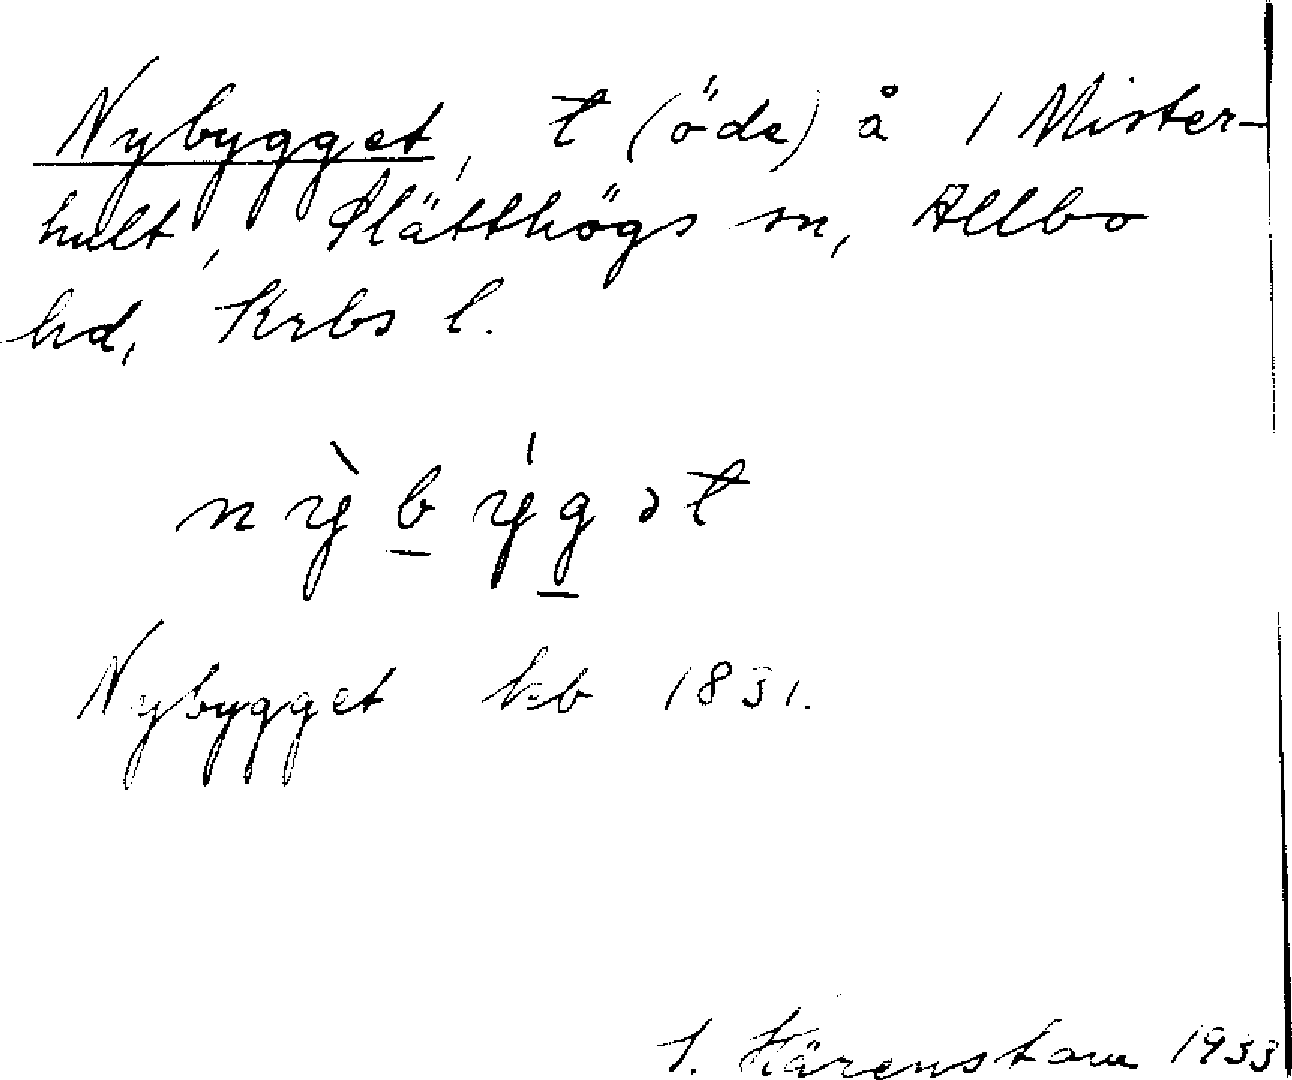 Nybygget, t (öde) å 1 Mister-
hult, Slätthögs sn, Allbo
hd, Krbs l.
nỳb́ýgət
Nybygget kb 1831.
S. Härenstam 1933